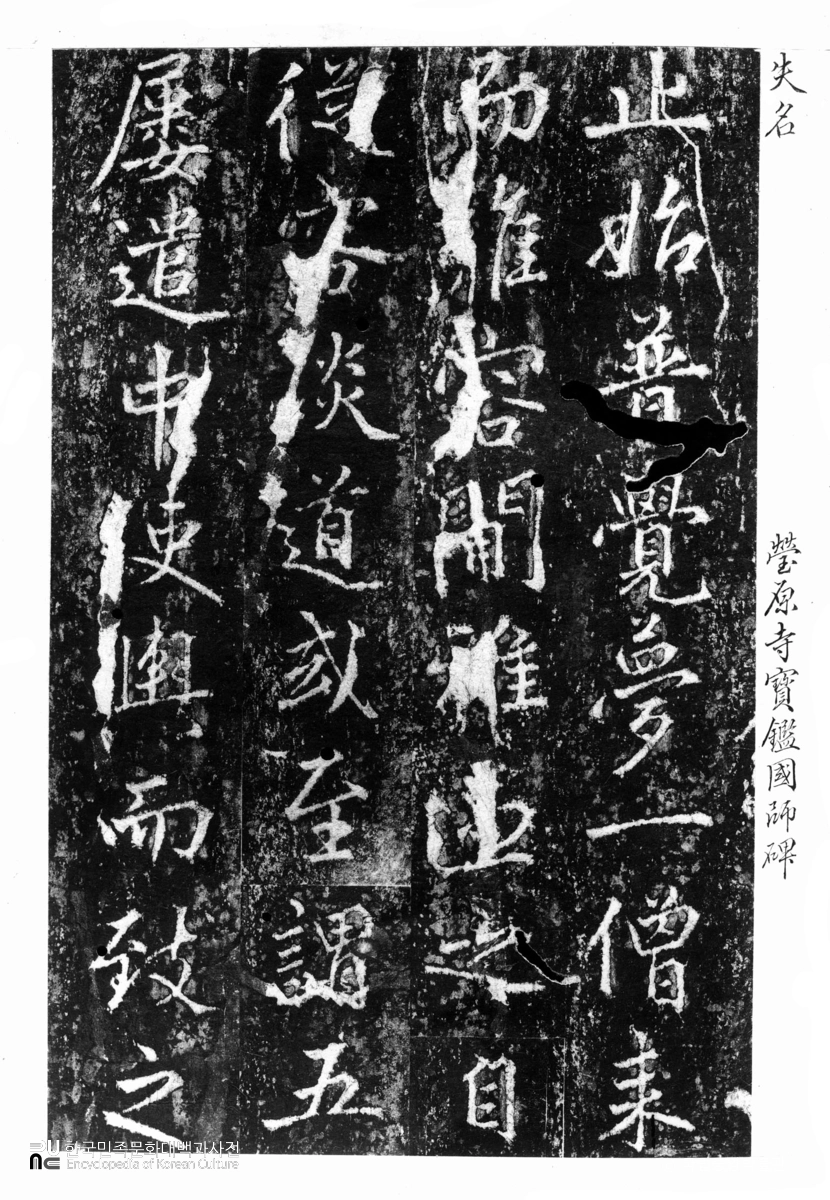 失名
瑩原寺寶鑑國師碑
止始普覺夢一僧来
容閒雅自
從容談道或至謂五
屢遣中使輿而致之
한국민족문화대백과사전
Encyclopedia of Korean Culture